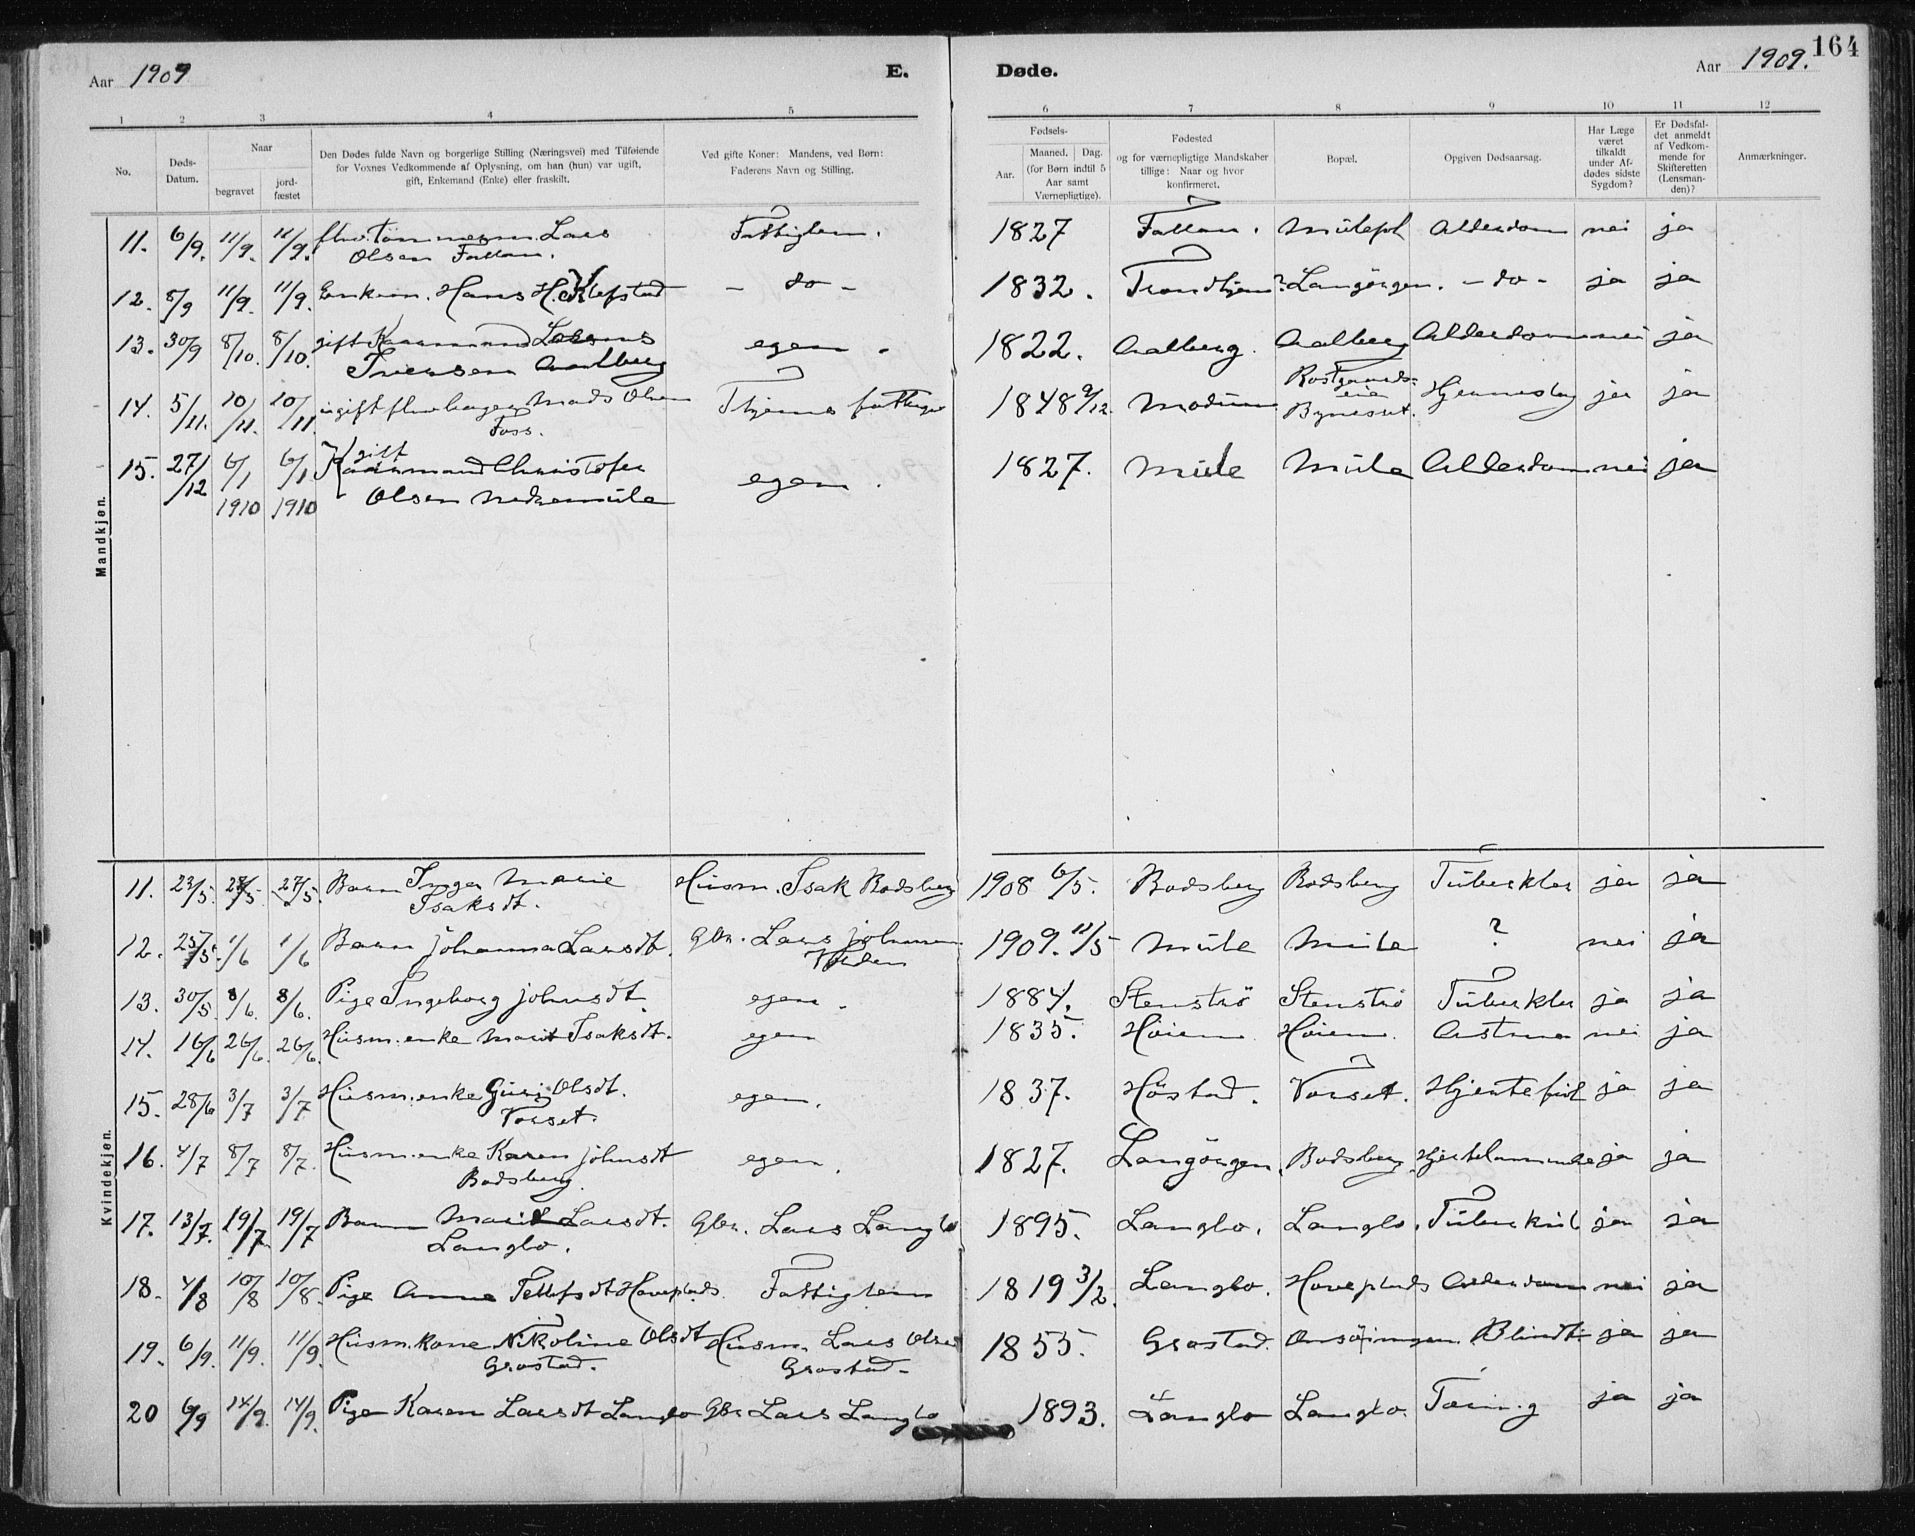 164
Aar 1909 E. Døde. Aar 1909.
1 2 3 4 5 6 7 8 9 10 11 12
No.
Døds-Datum.
Naar
begravet
jord-fæstet
Den Dødes fulde Navn og borgerlige Stilling (Næringsvei) med Tilføiende
for Voxnes Vedkommende af Oplysning, om han (hun) var ugift,
gift, Enkemand (Enke) eller fraskilt.
Ved gifte Koner: Mandens, ved Børn:
Faderens Navn og Stilling.
Fødsels-
Aar.
Maaned. Dag.
(for Børn indtil 5
Aar samt
Værnepligtige).
Fødested
og for værnepligtige Mandskaber
tillige: Naar og hvor
konfirmeret.
Bopæl.
Opgiven Dødsaarsag.
Har Læge
været
tilkaldt
under Af-
dødes sidste
Sygdom?
Er Dødsfal-
det anmeldt
af Vedkom-
mende for
Skifteretten
(Lensman-
den)?
Anmærkninger.
Mandkjøn.
11. 6/9. 11/9. 11/9. Lars Fattiglem. 1827 nei ja
Olsen
12. 8/9 11/9. 11/9. Enkem. Hans H. Klefstad - do - 1832. Trondhjem? Langörgen. - do - ja ja
13. 30/9 8/10. 8/10. gift Kaarmand egen. 1822. Aalberg. Aalberg Alderdom nei ja
Iversen Aalberg
14. 5/11. 10/11. 10/11. ugift Mads Olsen 1848 Modum Byneset. ja ja
Foss.
15. 27/12 6/1 6/1 gift Kaarmand Christofer egen. 1827. Mule Mule Alderdom nei ja
1910 1910 Olsen Nedremule
Kvindekjøn.
11. 23/5. 27/5. 27/5. Barn Inga Marie Husm. Isak Rodsberg 1908 6/5. Bodsberg Bodsberg Tuberkler ja ja
Isaksdt.
12. 25/5. 1/6 1/6 Barn Johanna Larsdt. Gbr. Lars Johnsen 1909. 11/5 Mule Mule ? nei ja
13. 30/5. 8/6. 8/6. Pige Ingeborg Johnsdt. egen. 1884. Stenströ Stenströ Tuberkler ja ja
14. 16/6 26/6. 26/6. Husm.enke Marit Isaksdt. egen 1835. Höiem Höiem. Astma nei ja
15. 28/6 3/7 3/7 Husm.enke Guri Olsdt. egen. 1837. Höstad. Vorset. Hjertefeil ja ja
Vorset.
16. 4/7 8/7 8/7. Husm.enke Karen Johnsdt egen. 1827. Langörgen. Bodsberg. Hjertelammelse ja ja
Bodsberg.
17. 13/7. 19/7 19/7 Barn Marit Larsdt. Gbr. Lars Langlo 1895. Langlo. Langlo. Tuberkul ja ja
Langlo.
18. 4/8 10/8 10/8. Pige Anne Tellefsdt Haveplads. Fattiglem 1819 3/2. Langlo. Haveplads Alderdom nei ja
19. 6/9. 11/9. 11/9. Husm.kone Nikoline Olsdt Husm. Lars Olsen 1855. Grostad. Blindt ja ja
Grostad. Grostad.
20 6/9 14/9. 14/9. Pige Karen Larsdt Langlo Gbr Lars Langlo 1893. Langlo Langlo. Tæring ja ja